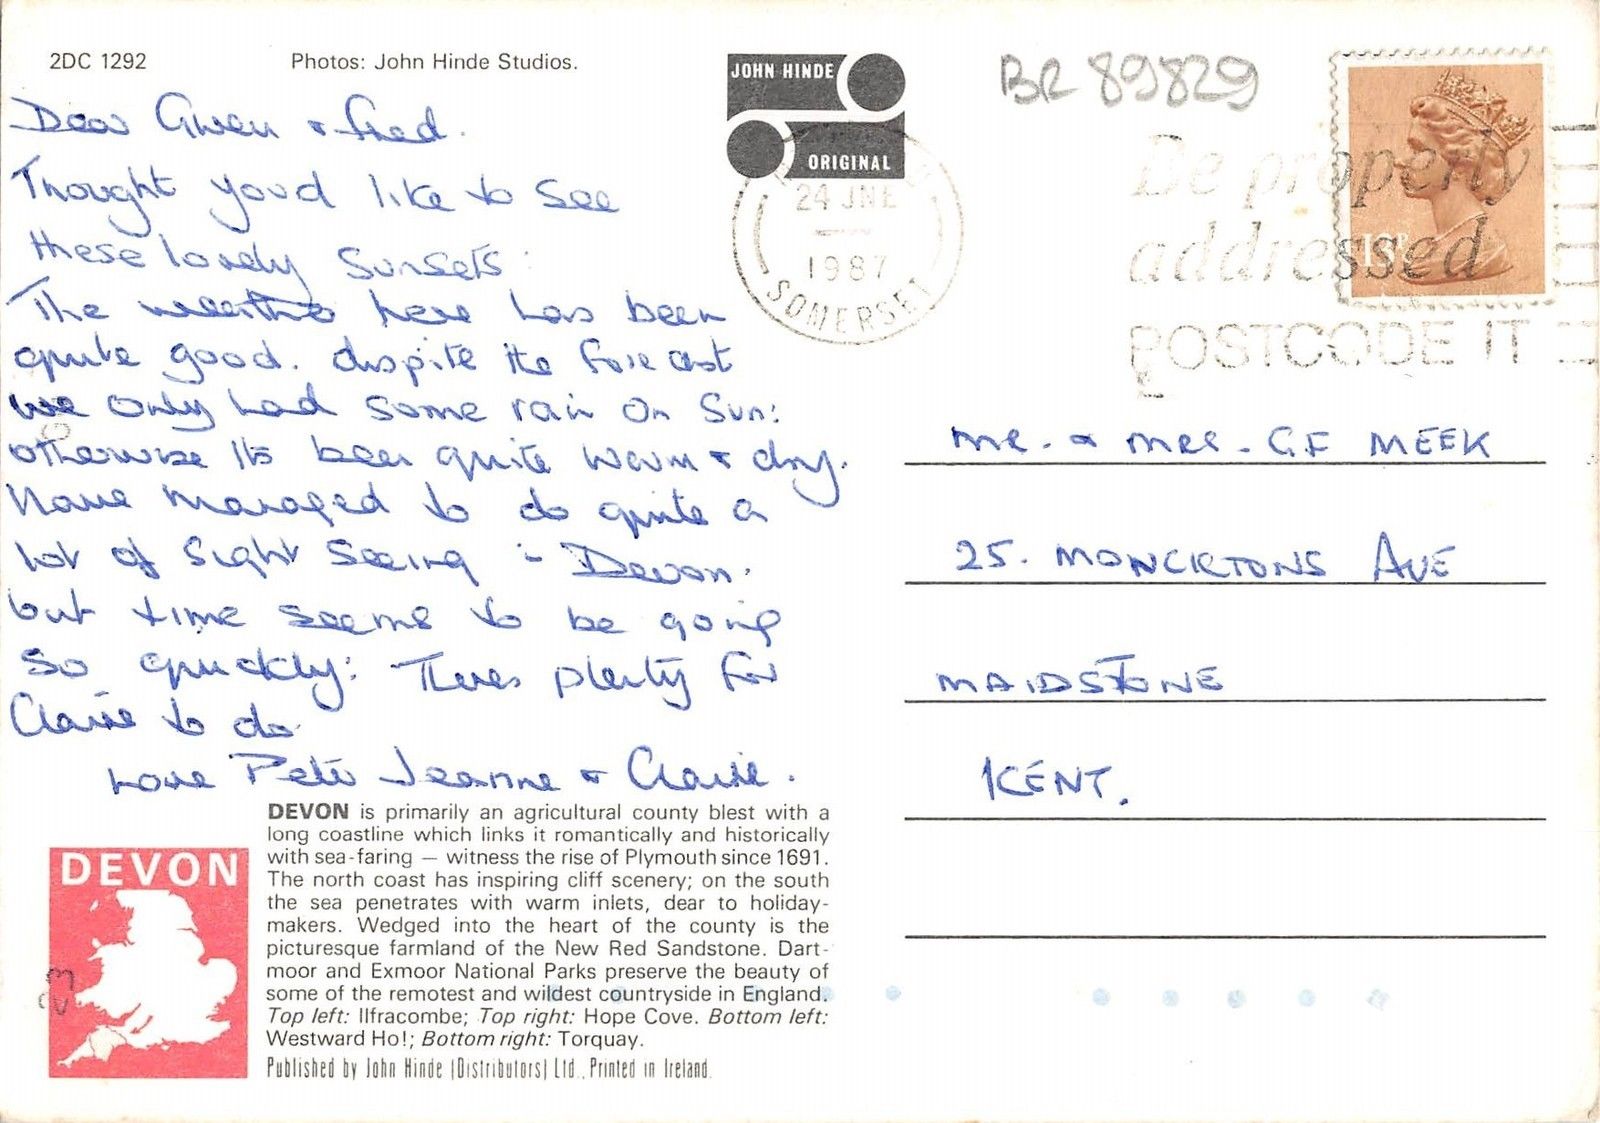 2DC 1292
Photos: John Hinde Studios.
JOHN HINDE
ORIGINAL
BR 89829
24 JNE
1987
SOMERSET
Be properly
addressed
POSTCODE IT
13P
Dear Gwen + Fred.
Thought youd like to see
these lovely sunsets.
The weather here has been
quite good. dispite the forecast
we only had some rain on Sun:
otherwise its been quite warm + dry.
Have managed to do quite a
lot of sight seeing - Devon.
but time seems to be going
so quickly: Theres plenty for
Claire to do
Love Pete Jeanne + Claire.
MR. + MRS. G.F MEEK
25. MONCKTONS AVE
MAIDSTONE
KENT.
DEVON is primarily an agricultural county blest with a
long coastline which links it romantically and historically
with sea-faring — witness the rise of Plymouth since 1691.
The north coast has inspiring cliff scenery; on the south
the sea penetrates with warm inlets, dear to holiday-
makers. Wedged into the heart of the county is the
picturesque farmland of the New Red Sandstone. Dart-
moor and Exmoor National Parks preserve the beauty of
some of the remotest and wildest countryside in England.
Top left: Ilfracombe; Top right: Hope Cove. Bottom left:
Westward Ho!; Bottom right: Torquay.
Published by John Hinde (Distributors) Ltd., Printed in Ireland.
DEVON